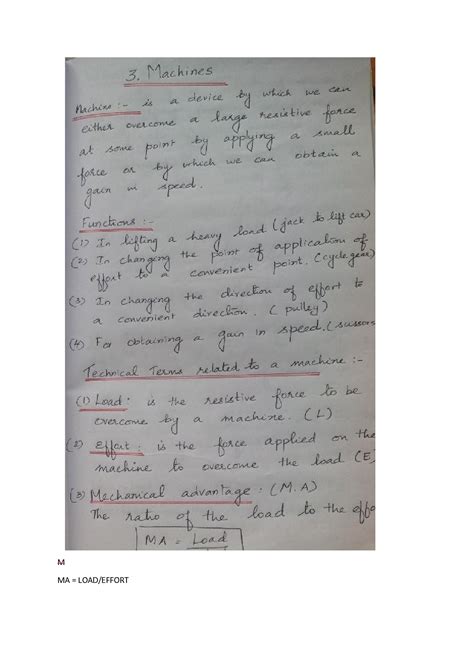 3. Machines
Machine :- is a device by which we can
either overcome a large resistive force
at some point by applying a small
force or by which we can obtain a
gain in speed.
Functions :-
(1) In lifting a heavy load (jack to lift car)
(2) In changing the point of application of
effort to a convenient point. (cycle gear)
(3) In changing the direction of effort to
a convenient direction. (pulley)
(4) For obtaining a gain in speed. (scissors
Technical Terms related to a machine :-
(1) Load : is the resistive force to be
overcome by a machine. (L)
(2) Effort : is the force applied on the
machine to overcome the load (E)
(3) Mechanical advantage : (M.A)
The ratio of the load to the effo
MA = Load
M
MA = LOAD/EFFORT